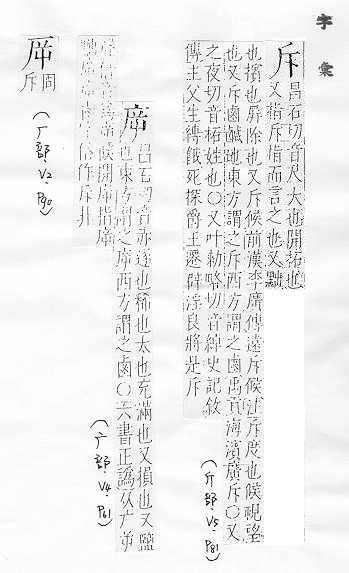 字彙
斥 昌石切音尺大也開拓也
又指斥指而言之也又黜
也擯也屏除也又斥候前漢李廣傳遠斥候注斥度也候視望
也又斥鹵鹹地東方謂之斥西方謂之鹵禹貢海濱廣斥〇又
之夜切音柘姓也〇又叶勅略切音綽史記敘
傳主父生縛餓死探爵王遷辟淫良將是斥
(斤部.V5.P81)
㡿 昌石切音赤逐也稀也太也充滿也又損也又鹽
也東方謂之㡿西方謂之鹵〇六書正譌从广屰
候開㡿指㡿
俗作斥非
(广部 V4.P61)
厈 同
斥
(厂部 V2.P90)